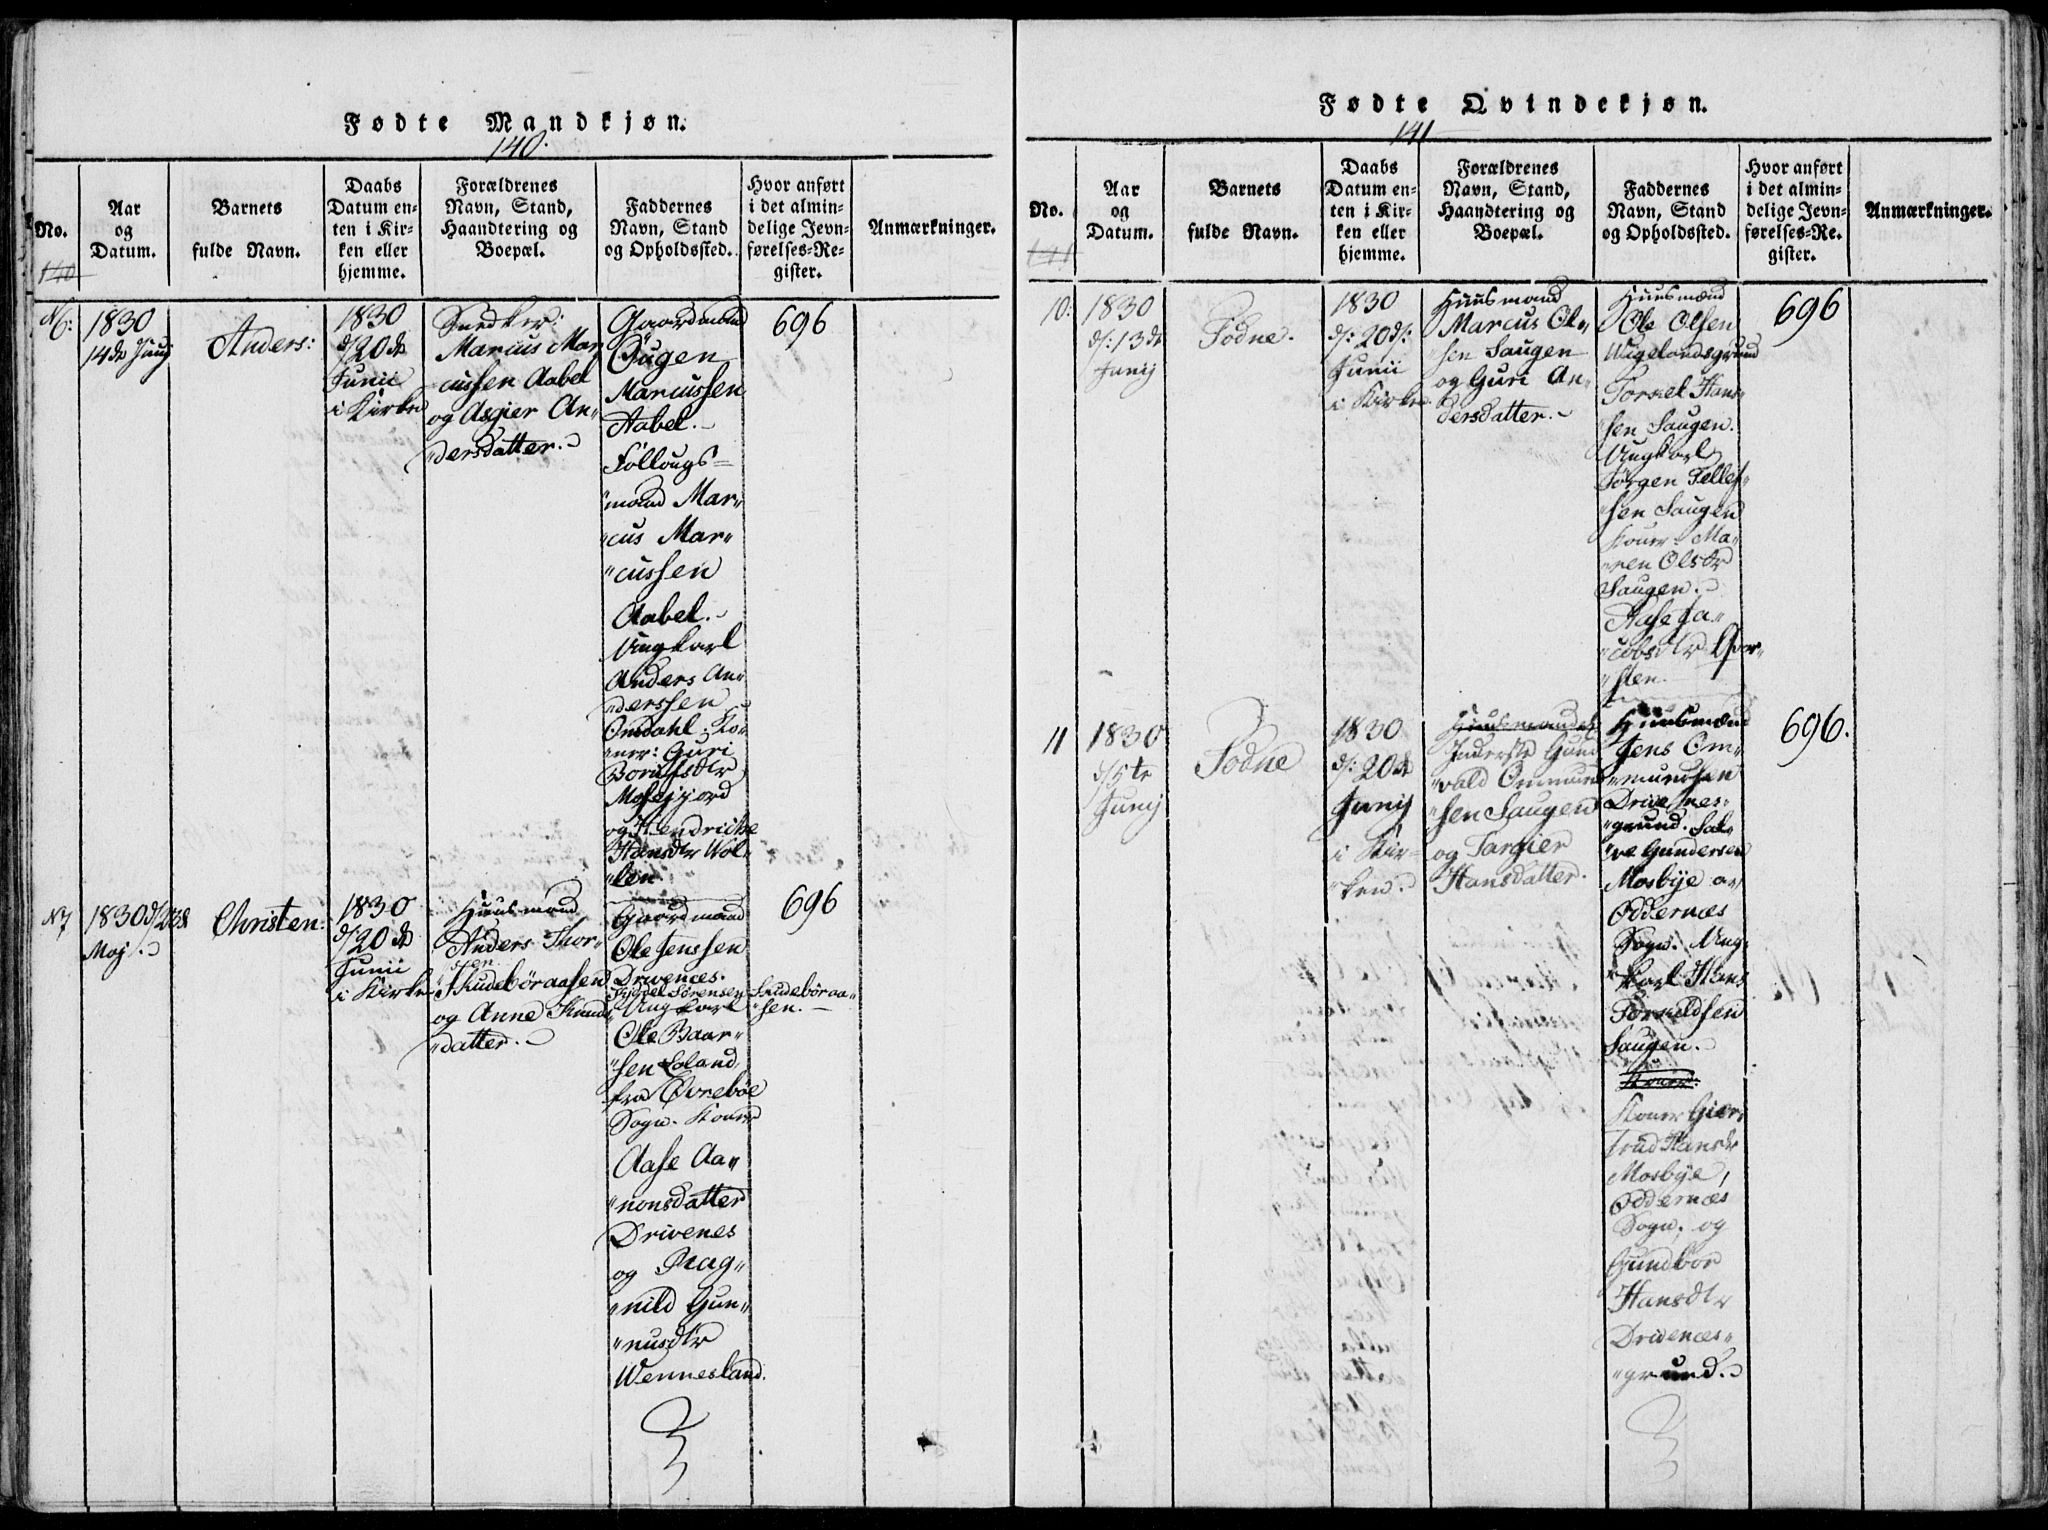 Fødte Mandkjøn.
140.
No.
140
Aar
og
Datum.
Barnets
fulde Navn.
Daabs
Datum en-
ten i Kir-
ken eller
hjemme.
Forældrenes
Navn, Stand,
Haandtering og
Boepæl.
Faddernes
Navn, Stand
og Opholdssted.
Hvor anført
i det almin-
delige Jevn-
førelses-Re-
gister.
Anmærkninger.
N6:
1830
14de Junij
Anders:
1830
d/20de
Junii
i Kirken
Snedker:
Marcus Mar
cussen Aabel
og Asgier An„
„dersdatter.
Gaardmand
Marcussen
Aabel.
mand Mar„
„cus Mar„
„cussen
Aabel.
Ungkarl
Anders An„
„derssen
Omdahl. Ko„
„ner: Guri
Mosefjord
og Hendrikke
Hansdtr Wol„
„len.
696
N7
1830 d/23de
Maj.
Christen:
1830
d/20de
Junii
i Kirken
Huusmand
Anders Thor„
sen
Skudebøraasen
og Anne Knuds
„datter.
Gaardmand
Ole Jenssen
Drivenes.
Sørensen Skudebøraa„
„sen.
Ungkarl
Ole Baar„
„sen Loland
fra Øvrebøe
Sogn. Koner
Aase Aa„
„nonsdatter
Drivenes
og Rag„
„nild Gun„
„nusdtr
Wennesland.
696
Fødte Qvindekjøn.
141
No.
141
Aar
og
Datum.
Barnets
fulde Navn.
Daabs
Datum en-
ten i Kir-
ken eller
hjemme.
Forældrenes
Navn, Stand,
Haandtering og
Boepæl.
Faddernes
Navn, Stand
og Opholdssted.
Hvor anført
i det almin-
delige Jevn-
førelses-Re-
gister.
Anmærkninger.
10:
1830
d/: 13de
Junij
Todne.
1830
d/: 20d/:
Junii
i Kirken
Huusmand
Marcus Ol„
sen Saugen
og Guri An„
dersdatter.
Huusmænd
Ole Olsen
Wigelandsgrund
Torkel Hans„
„sen Saugen.
Ungkarl
Jørgen Tellef„
„sen Saugen
Koner: Ma„
„ren Olsdtr
Saugen.
Aase Ja„
„cobsdtr
„sten.
696
11
1830
d/5te
Junij
Todne
1830
d/: 20de
Junij
i Kir„
„ken.
Huusmand
Inderste Gun
„vald Ommund
„sen Saugen
og Targier
Hansdatter.
Huusmænd
Jens Om„
„mundsen
Drivenes„
„grund. Sal„
„ve Gundersen
Mosbye av
Oddernæs
Sogn. Ung„
„karl Hans
Torkeldsen
Saugen.
Koner:
Koner Gier„
„trud Hansdtr
Mosbye,
Oddernæs
Sogn, og
Gundbor
Hansdtr
Drivenæs„
„grund.
696.